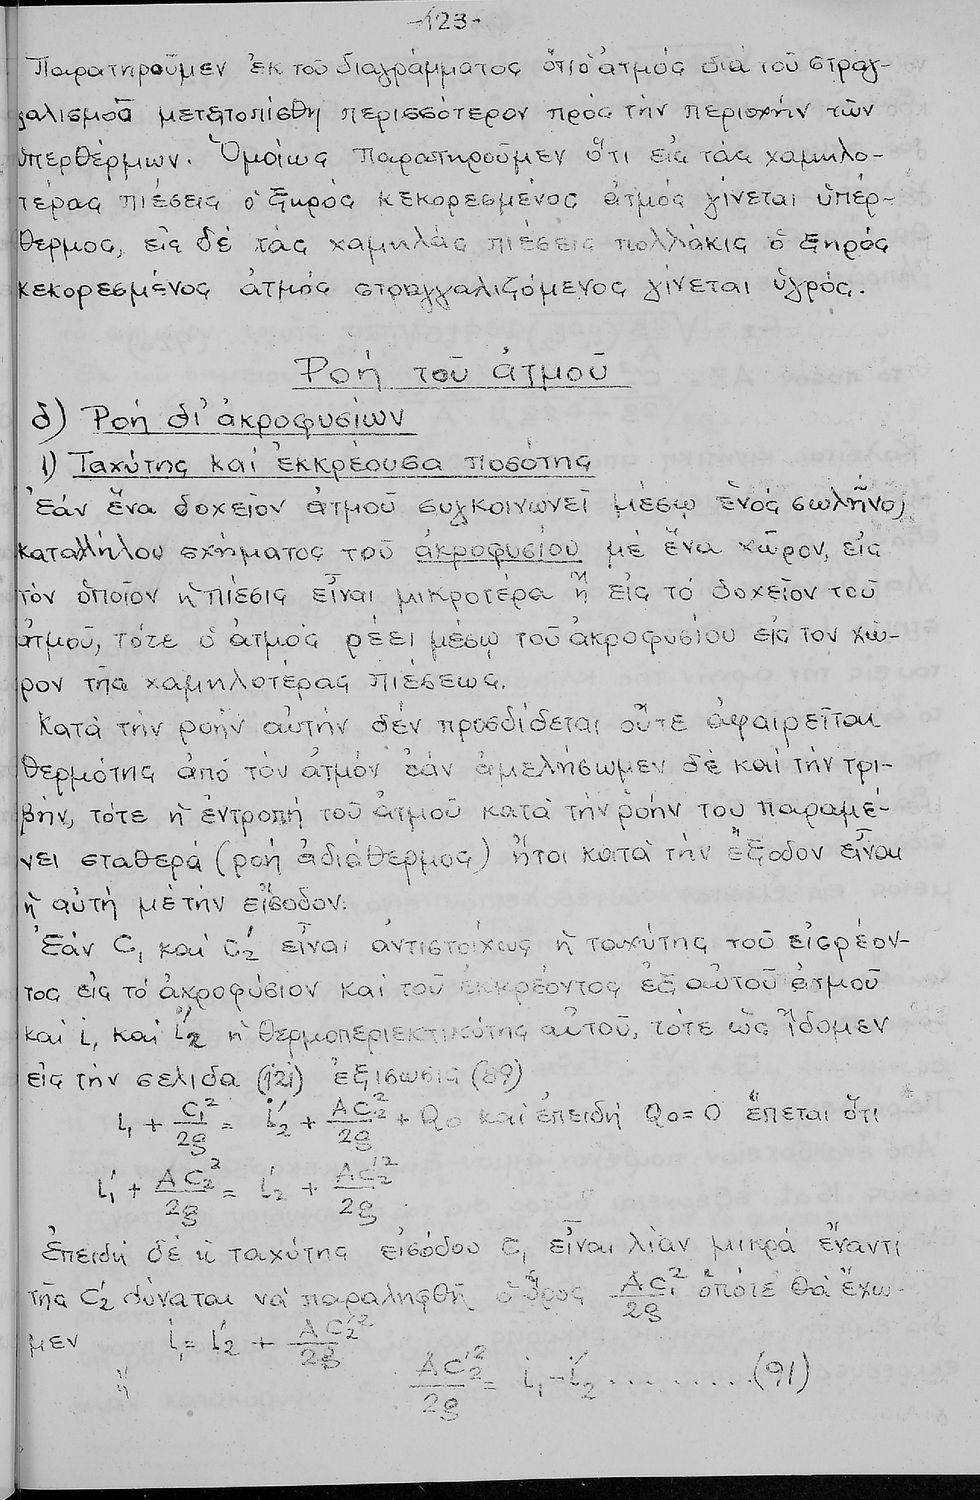 -123-
Παρατηροῦμεν ἐκ τοῦ διαγράμματος ὅτι ὁ ἀτμός διά τοῦ στραγ-
γαλισμοῦ μετετοπίσθη περισσότερον πρός τήν περιοχήν τῶν
ὑπερθέρμων. Ὁμοίως παρατηροῦμεν ὅτι εἰς τάς χαμηλο-
τέρας πιέσεις ὁ ξηρός κεκορεσμένος ἀτμός γίνεται ὑπέρ-
θερμος, εἰς δέ τάς χαμηλάς πιέσεις πολλάκις ὁ ξηρός
κεκορεσμένος ἀτμός στραγγαλιζόμενος γίνεται ὑγρός.
Ροή τοῦ ἀτμοῦ
δ) Ροή δι' ἀκροφυσίων
1) Ταχύτης καί ἐκκρέουσα ποσότης
Ἐάν ἕνα δοχεῖον ἀτμοῦ συγκοινωνεῖ μέσῳ ἑνός σωλῆνος
καταλλήλου σχήματος τοῦ ἀκροφυσίου μέ ἕνα χῶρον, εἰς
τόν ὁποῖον ἡ πίεσις εἶναι μικροτέρα ἤ εἰς τό δοχεῖον τοῦ
ἀτμοῦ, τότε ὁ ἀτμός ρέει μέσῳ τοῦ ἀκροφυσίου εἰς τον χῶ-
ρον τῆς χαμηλοτέρας πιέσεως.
Κατά τήν ροήν αὐτήν δέν προσδίδεται οὔτε ἀφαιρεῖται
θερμότης ἀπό τόν ἀτμόν ἐάν ἀμελήσωμεν δέ καί τήν τρι-
βήν, τότε ἡ ἐντροπή τοῦ ἀτμοῦ κατά τήν ροήν του παραμέ-
νει σταθερά (ροή ἀδιάθερμος) ἤτοι κατά τήν ἔξοδον εἶναι
ἡ αὐτή μέ τήν εἴσοδον.
Ἐάν C₁ καί C₂' εἶναι ἀντιστοίχως ἡ ταχύτης τοῦ εἰσρέον-
τος εἰς τό ἀκροφύσιον καί τοῦ ἐκκρέοντος ἐξ αὐτοῦ ἀτμοῦ
καί i₁ καί i₂' ἡ θερμοπεριεκτικότης αὐτοῦ, τότε ὡς ἴδομεν
εἰς τήν σελίδα (121) ἐξίσωσις (89)
i₁ + C₁²/2g = i₂' + AC₂²/2g + Q₀ καί ἐπειδή Q₀=0 ἕπεται ὅτι
i₁' + AC₂²/2g = i₂' + AC₂'²/2g
ἐπειδή δέ ἡ ταχύτης εἰσόδου C₁ εἶναι λίαν μικρά ἔναντι
τῆς C₂' δύναται νά παραληφθῇ ὁ ὅρος AC₁²/2g ὁπότε θά ἔχω-
μεν i₁ = i₂' + AC₂'²/2g
ἤ AC₂'²/2g = i₁ - i₂' .......... (91)